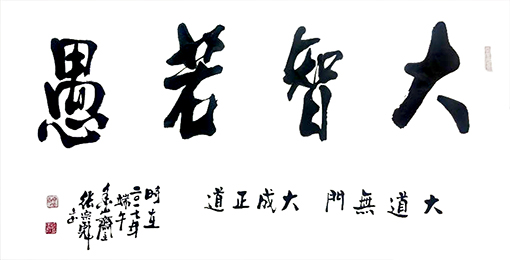 大智若愚
大道無門 大成正道
時在
二〇一七年
端午